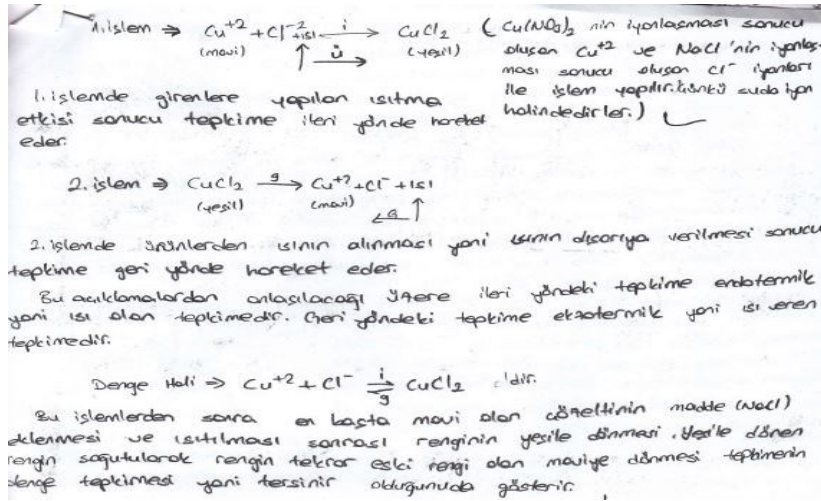 1. işlem ⇒ Cu⁺² + Cl⁻² + ısı —i→ CuCl₂ ( Cu(NO₃)₂ nin iyonlaşması sonucu
(mavi) ü (yeşil) oluşan Cu⁺² ve NaCl'nin iyonlaş-
ması sonucu oluşan Cl⁻ iyonları
1. işlemde girenlere yapılan ısıtma ile işlem yapılır. Çünkü suda iyon
etkisi sonucu tepkime ileri yönde hareket halindedirler.)
eder.
2. işlem ⇒ CuCl₂ —g→ Cu⁺² + Cl⁻ + ısı
(yeşil) (mavi)
2. işlemde ürünlerden ısının alınması yani ısının dışarıya verilmesi sonucu
tepkime geri yönde hareket eder.
Bu açıklamalardan anlaşılacağı üzere ileri yöndeki tepkime endotermik
yani ısı alan tepkimedir. Geri yöndeki tepkime ekzotermik yani ısı veren
tepkimedir.
Denge Hali ⇒ Cu⁺² + Cl⁻ i⇌g CuCl₂ 'dir.
Bu işlemlerden sonra en başta mavi olan çözeltinin madde (NaCl)
eklenmesi ve ısıtılması sonrası renginin yeşile dönmesi. Yeşile dönen
rengin soğutularak rengin tekrar eski rengi olan maviye dönmesi tepkimenin
denge tepkimesi yani tersinir olduğunuda gösterir.